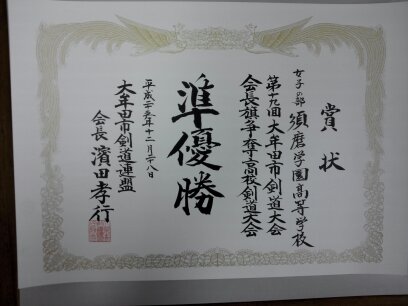 賞状
女子の部 須磨学園高等学校
第十九回大牟田市剣道大会
会長旗争奪高校剣道大会
準優勝
平成二十五年十二月二十八日
大牟田市剣道連盟
会長 濱田孝行